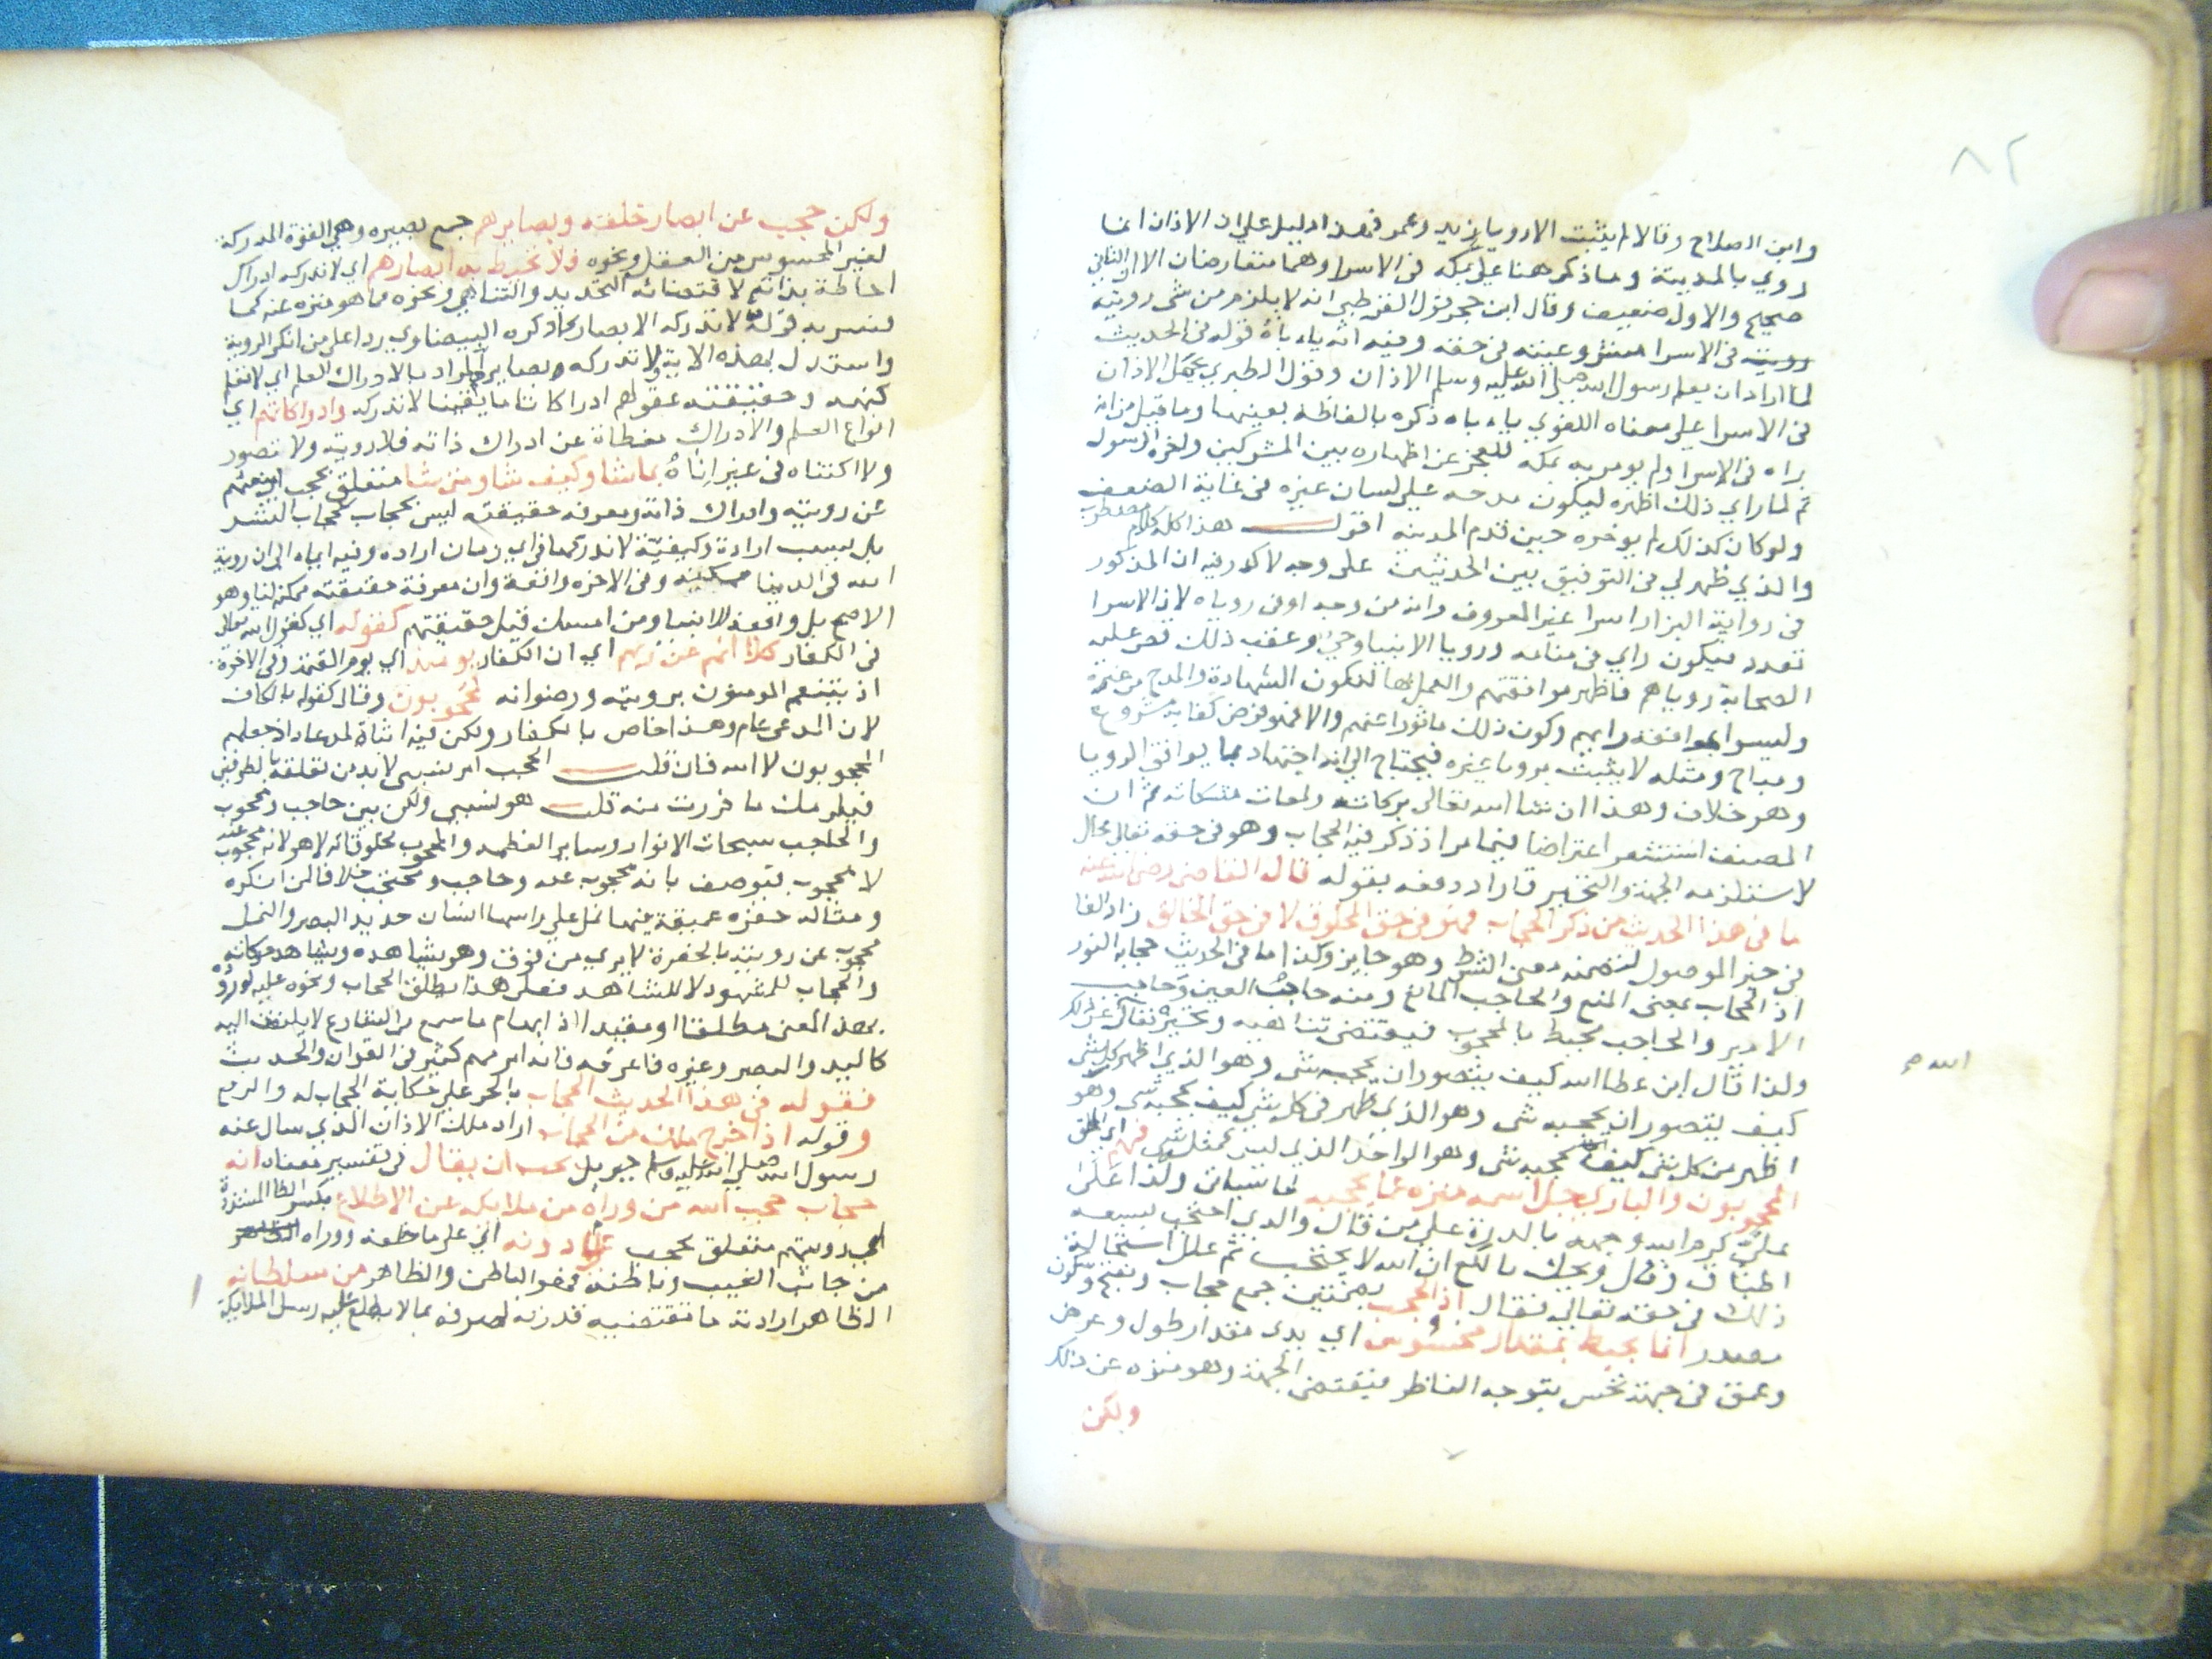 ٨٢
وابن الصلاح وقالا لم يثبت الا رويا زيد وعمر فهذا دليل علي ان الاذان انما
روي بالمدينة وما ذكر هنا علي بمكه في الاسرا وهما متعارضان الا ان الثاني
صحيح والاول ضعيف وقال ابن حجر قول القرطبي انه لا يلزم من شي رويته
في الاسرا مشروعيته في حقه وفيه انه ياباه قوله في الحديث
لما اراد ان يعلم رسول الله صلي الله عليه وسلم الاذان وقول الطبري يحمل الاذان
في الاسرا علي معناه اللغوي ياباه ذكره بالفاظه بعينها وما قيل من انه
راه في الاسرا ولم يومر به بمكه للعجز عن اظهاره بين المشركين ولغزه الرسول
ثم لما راي ذلك اظهره ليكون مدحه علي لسان غيره في غاية الضعف
ولو كان كذلك لم يوخره حين قدم المدينه اقول هذا كله كلام مضطرب
والذي ظهر لي في التوفيق بين الحديثين علي وجه لا كدر فيه ان المذكور
في رواية البزار اسرا غير المعروف وانه من وجه اوفي روياه لان الاسرا
تعدد فيكون راي في منامه ورويا الانبيا وحي وعقب ذلك قص عليه
الصحابة روياهم فاظهر موافقتهم والعمل بها لتكون الشهادة والمدح من غيره
وليسوا بموافقة رايهم وكون ذلك ماثورا عنهم والا فهو فرض كفاية مشروع
ومباح ومثله لا يثبت برويا غيره فيحتاج الي انه اجتهاد بما يوافق الرويا
وهو خلاف وهذا ان شا الله تعالي بركات ولمعات مشكاته ثم ان
المصنف استشعر اعتراضا فيما مر اذ ذكر فيه الحجاب وهو في حقه تعالي محال
لاستلزامه الجهة والتحيز فاراد دفعه بقوله قال القاضي رضي الله عنه
ما في هذا الحديث من ذكر الحجاب فهو في حق المخلوق لا في حق الخالق زاد الفا
في خبر الموصول لتضمنه معني الشرط وهو جايز وكذا ما في الحديث حجابه النور
اذ الحجاب بمعني المنع والحاجب المانع ومنه حاجب العين وحاجب
الامير والحاجب محيط بالمحجوب فيقتضي تناهيه وتحيزه تعالي عن ذلك
ولذا قال ابن عطا الله كيف يتصور ان يحجبه شي وهو الذي اظهر كل شي
كيف يتصور ان يحجبه شي وهو الذي ظهر في كل شي كيف يحجبه شي وهو
اظهر من كل شي كيف يحجبه شي وهو الواحد الذي ليس كمثله شي فهم اي الخلق
المحجوبون والباري جل اسمه منزه عما يحجبه لما سياتي ولذا علا
علي كرم الله وجهه بالدرة علي من قال والذي احتجب بسبعه
اطباق وقال ويحك يا لكع ان الله لا يحتجب ثم علل استحالية
ذلك في حقه تعالي فقال اذ الحجب بضمتين جمع حجاب وبفتح وسكون
مصدر انما يحيط بمقدار محسوس اي بدي مقدار طول وعرض
وعمق في جهة تحس بتوجه الناظر فيقتضي الجهة وهو منزه عن ذلك
ولكن
الله صح
ولكن حجب عن ابصار خلقه وبصايرهم جمع بصيره وهي القوة المدركة
لغير المحسوس من العقل ونحوه فلا تحيط به ابصارهم اي لا تدركه ادراك
احاطة بذاته لاقتضائه التحديد والتناهي ونحوه مما هو منزه عنه كما
فسر به قوله لا تدركه الابصار كما ذكره البيضاوي ردا علي من انكر الروية
واستدل بهذه الاية ولا تدركه بصايرهم المراد بالادراك العلم اي لا تعلم
كنهه وحقيقته عقولهم ادراكا تاما يقينا لا تدركه وادراكاتهم اي
انواع العلم والادراك مغطاة عن ادراك ذاته فلا روية ولا تصور
ولا اكتناه في غير اناه بما شا وكيف شا ومتي شا متعلق بحجب اي منعهم
عن رويته وادراك ذاته ومعرفة حقيقته ليس بحجاب كحجاب البشر
بل بسبب ارادة وكيفية لا ندركها في اي زمان اراده وفيه ايماء الي ان روية
الله في الدنيا ممكنة وفي الاخره واقعة وان معرفة حقيقته ممكنة لنا وهو
الاصح بل واقعة للانبيا ومن امسك قيل حقيقتهم كقوله اي كقول الله تعالي
في الكفار كلا انهم عن ربهم اي ان الكفار يومئذ اي يوم القيمة وفي الاخرة
اذ يتنعم المومنون برويته ورضوانه لمحجوبون وقال كقوله بالكاف
لان المدعي عام وهذا خاص بالكفار ولكن فيه اثباة لمدعاه اذ جعلهم
المحجوبون لا الله فان قلت الحجب امر نسبي لا بد من تعلقه بالطرفين
فيلزمك ما فررت منه قلت هو نسبي ولكن بين حاجب ومحجوب
والحاجب سبحات الانوار وساير العظمه والمحجوب مخلوقاته لا هو لانه محجوب عنه
لا محجوب فيوصف بانه محجوب عنه وحاجب ومحتجب خلافا لمن انكره
ومثاله حفره عميقة فيها نمل علي راسها انسان حديد البصر والنمل
محجوب عن رويته بالحفرة لا يري من فوق وهو يشاهده ويشاهد حركاته
والحجاب للمشهود لا للشاهد فعلي هذا يطلق الحجاب ونحوه عليه لوروده
بهذ المعني مطلقا او مقيدا اذ ايهام ما سمع من الشارع لا يلتفت اليه
كاليد والبصر وغيره فاعرفه فانه امر مهم كثير في القران والحديث
فقوله في هذا الحديث الحجاب بالجر علي حكاية الحجاب له والرفع
وقوله اذ خرج ملك من الحجاب اراد ملك الاذان الذي سال عنه
رسول الله صلي الله عليه وسلم جبريل يجب ان يقال في تفسير معناه انه
حجاب حجب الله من وراه من ملايكه عن الاطلاع بكسر الطا المشددة
اي رويتهم متعلق بحجب علي ما دونه اي علي ما خلفه ووراه
من جانب الغيب وباطنه فهو الباطن والظاهر من سلطانه
الظاهر ارادته ما تقتضيه قدرته لصرفه بما لا يطلع عليه رسل الملايكة